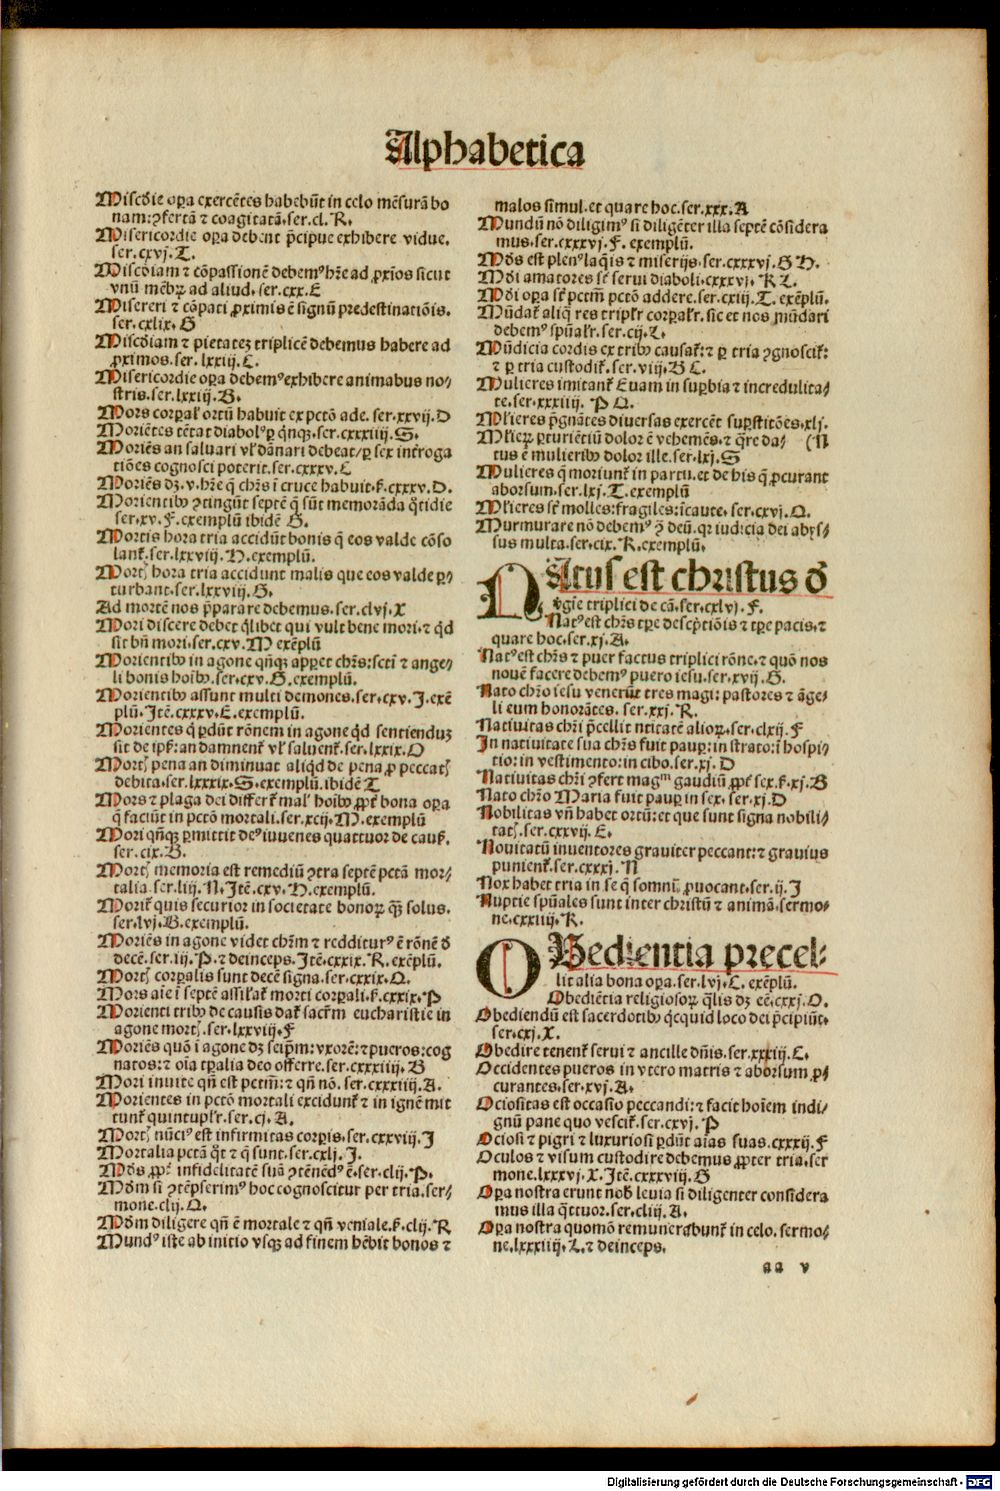 Alphabetica
Misc̄die oꝑa exercētes habebūt in celo mēsurā bo
nam: ꝯfertā ⁊ coagitatā. ser. cl. R.
Misericordie oꝑa debent p̄cipue exhibere vidue.
ser. cxvj. T.
Misc̄diam ⁊ cōpassionē debemꝰ hr̄e ad ꝓxīos sicut
vnū mēbꝝ ad aliud. ser. cxx. E
Misereri ⁊ cōpati ꝓximis ē signū predestinatiōis.
ser. cxlix. G
Misc̄diam ⁊ pietatez triplicē debemus habere ad
ꝓximos. ser. lxxiij. C.
Misericordie oꝑa debemꝰ exhibere animabus no⸗
stris. ser. lxxiij. B.
Mors corꝑal̓ ortū habuit ex pctō ade. ser. xxvij. D
Moriētes tētat diabolꝰ ꝑ qnqꝫ. ser. cxxxiiij. S.
Moriēs an saluari vl̓ dānari debeat/ ꝑ sex int̓roga
tiōes cognosci poterit. ser. cxxxv. C
Moriēs dꝫ. v. hr̄e q̄ chr̄s ī cruce habuit. ẜ. cxxxv. D.
Morientibꝰ ꝯtingūt septē q̄ sūt memorāda q̄tidie
ser. xv. F. exemplū ibidē G.
Mortis hora tria accidūt bonis q̄ eos valde cōso
lant᷑. ser. lxxviij. H. exemplū.
Mortꝭ hora tria accidunt malis que eos valde ꝑ⸗
turbant. ser. lxxviij. G.
Ad mortē nos p̄parare debemus. ser. clvj. X
Mori discere debet q̄libet qui vult bene mori. ⁊ qd̄
sit bn̄ mori. ser. cxv. M exēplū
Morientibꝰ in agone qnqꝫ apꝑet chr̄s: scti ⁊ ange⸗
li bonis hoībꝰ. ser. cxv. G. exemplū.
Morientibꝰ assunt multi demones. ser. cxv. J. exē
plū. Jtē. cxxxv. E. exemplū.
Morientes q̄ ꝑdūt rōnem in agone qd̄ sentienduz
sit de ipẜ: an damnent᷑ vl̓ saluent᷑. ser. lxxix. O
Mortꝭ pena an diminuat aliqd̄ de pena ꝓ peccatꝭ
debita. ser. lxxxix. S. exemplū. ibidē T
Mors ⁊ plaga dei differt᷑ malꝭ hoībꝰ ꝓpt̓ bona oꝑa
q̄ faciūt in pctō mortali. ser. xcij. M. exemplū
Mori qn̄qꝫ ꝑmittit deꝰ iuuenes quattuor de cauẜ.
ser. cix. B.
Mortꝭ memoria est remediū ꝯtra septē pctā mor⸗
talia. ser. liij. N. Jtē. cxv. H. exemplū.
Morit᷑ quis securior in societate bonoꝝ qꝫ̄ solus.
ser. lvj. B. exemplū.
Moriēs in agone videt chr̄m ⁊ redditurꝰ ē rōnē ð
decē. ser. iij. P. ⁊ deinceps. Jtē. cxxix. R. exēplū.
Mortꝭ corꝑalis sunt decē signa. ser. cxxix. Q.
Mors aīe ī septē assil̓at᷑ morti corꝑali. ẜ. cxxix. P
Morienti tribꝰ de causis dat᷑ sacr̄m eucharistie in
agone mortꝭ. ser. lxxviij. F
Moriēs quō ī agone dꝫ seip̄m: vxorē: ⁊ pueros: cog
natos: ⁊ oīa tꝑalia deo offerre. ser. cxxxiiij. B
Mori inuite qn̄ est pctm̄: ⁊ qn̄ nō. ser. cxxxiiij. A.
Morientes in pctō mortali excidunt᷑ ⁊ in ignē mit
tunt᷑ quintupl̓r. ser. cj. A.
Mortꝭ nūciꝰ est infirmitas corꝑis. ser. cxxviij. J
Mortalia pctā q̄t ⁊ q̄ sunt. ser. cxlj. J.
Mðs, ꝓpt̓ infidelitatē suā ꝯtēnēdꝰ ē. ser. clij. P.
Mðm si ꝯtēpserimꝰ hoc cognoscitur per tria. ser⸗
mone. clij. Q.
Mðm diligere qn̄ ē mortale ⁊ qn̄ veniale. ẜ. clij. R
Mundꝰ iste ab initio vsqꝫ ad finem hēbit bonos ⁊
malos simul. et quare hoc. ser. xxx. A
Mundū nō diligimꝰ si diligēter illa septē cōsidera
mus. ser. cxxxvj. F. exemplū.
Mðs est plenꝰ laq̄is ⁊ miserijs. ser. cxxxvj. G H.
Mði amatores st̄ serui diaboli. cxxxvj. K L.
Mði oꝑa st̄ pctm̄ pctō addere. ser. cxij. T. exēplū.
Mūdat᷑ aliq̄ res tripl̓r corꝑal̓r. sic et nos mūdari
debemꝰ spūal̓r. ser. cij. L.
Mūdicia cordis ex tribꝰ causat᷑: ⁊ ꝑ tria ꝯgnoscit᷑:
⁊ ꝑ tria custodit᷑. ser. viij. B C.
Mulieres imitant᷑ Euam in suꝑbia ⁊ incredulita⸗
te. ser. xxxiiij. P Q.
Ml̓ieres p̄gnātes diuersas exercēt suꝑstitōes. xlj.
Ml̓ieꝝ ꝑturiētiū dolor ē vehemēs. ⁊ q̄re da⸗ (N
tus ē mulieribꝰ dolor ille. ser. lxj. S
Mulieres q̄ moriunt᷑ in partu. et de his q̄ ꝓcurant
aborsum. ser. lxj. T. exemplū
Ml̓ieres st̄ molles: fragiles: īcaute. ser. cxvj. Q.
Murmurare nō debemꝰ ꝯ̄ deū. qꝛ iudicia dei abys⸗
sus multa. ser. cix. R. exemplū.
NAtus est christus ð
v̓gīe triplici de cā. ser. cxlvj. F.
Natꝰ est chr̄s tꝑe descp̄tiōis ⁊ tꝑe pacis. ⁊
quare hoc. ser. xj. A.
Natꝰ est chr̄s ⁊ puer factus triplici rōne. ⁊ quō nos
nouē facere debemꝰ puero iesu. ser. xvij. G.
Nato chr̄o iesu venerūt tres magi: pastores ⁊ āge⸗
li eum honorātes. ser. xxj. R.
Natiuitas chr̄i p̄cellit nt̄itatē alioꝝ. ser. clxij. F
Jn natiuitate sua chr̄s fuit pauꝑ: in strato: ī hospi⸗
tio: in vestimento: in cibo. ser. xj. D
Natiuitas chr̄i ꝯfert magᵐ gaudiū ꝓpt̓ sex. ẜ. xj. B
Nato chr̄o Maria fuit pauꝑ in sex. ser. xj. D
Nobilitas vn̄ habet ortū: et que sunt signa nobili⸗
tatꝭ. ser. cxxvij. E.
Nouitatū inuentores grauiter peccant: ⁊ grauius
punient᷑. ser. cxxxj. N
Nox habet tria in se q̄ somnū ꝓuocant. ser. ij. J
Nuptie spūales sunt inter christū ⁊ animā. sermo⸗
ne. cxxiiij. K.
OBedientia precel⸗
lit alia bona oꝑa. ser. lvj. C. exēplū.
Obediētia religiosoꝝ q̄lis dꝫ eē. cxxj. O.
Obediendū est sacerdotibꝰ qc̄quid loco dei p̄cipiūt.
ser. cxj. X.
Obedire tenent᷑ serui ⁊ ancille dn̄is. ser. xxxiij. C.
Occidentes pueros in vtero matris ⁊ aborsum ꝓ⸗
curantes. ser. xvj. A.
Ociositas est occasio peccandi: ⁊ facit hoīem indi⸗
gnū pane quo vescit᷑. ser. cxvj. P
Ociosi ⁊ pigri ⁊ luxuriosi ꝑdūt aīas suas. cxxxij. F
Oculos ⁊ visum custodire debemus ꝓpter tria. ser
mone. lxxxvj. X. Jtē. cxxxviij. G
Oꝑa nostra erunt nob̄ leuia si diligenter considera
mus illa q̄ttuor. ser. cliij. A.
Oꝑa nostra quomō remunerabunt᷑ in celo. sermo⸗
ne. lxxxiiij. L. ⁊ deinceps.
aa v
Digitalisierung gefördert durch die Deutsche Forschungsgemeinschaft - DFG